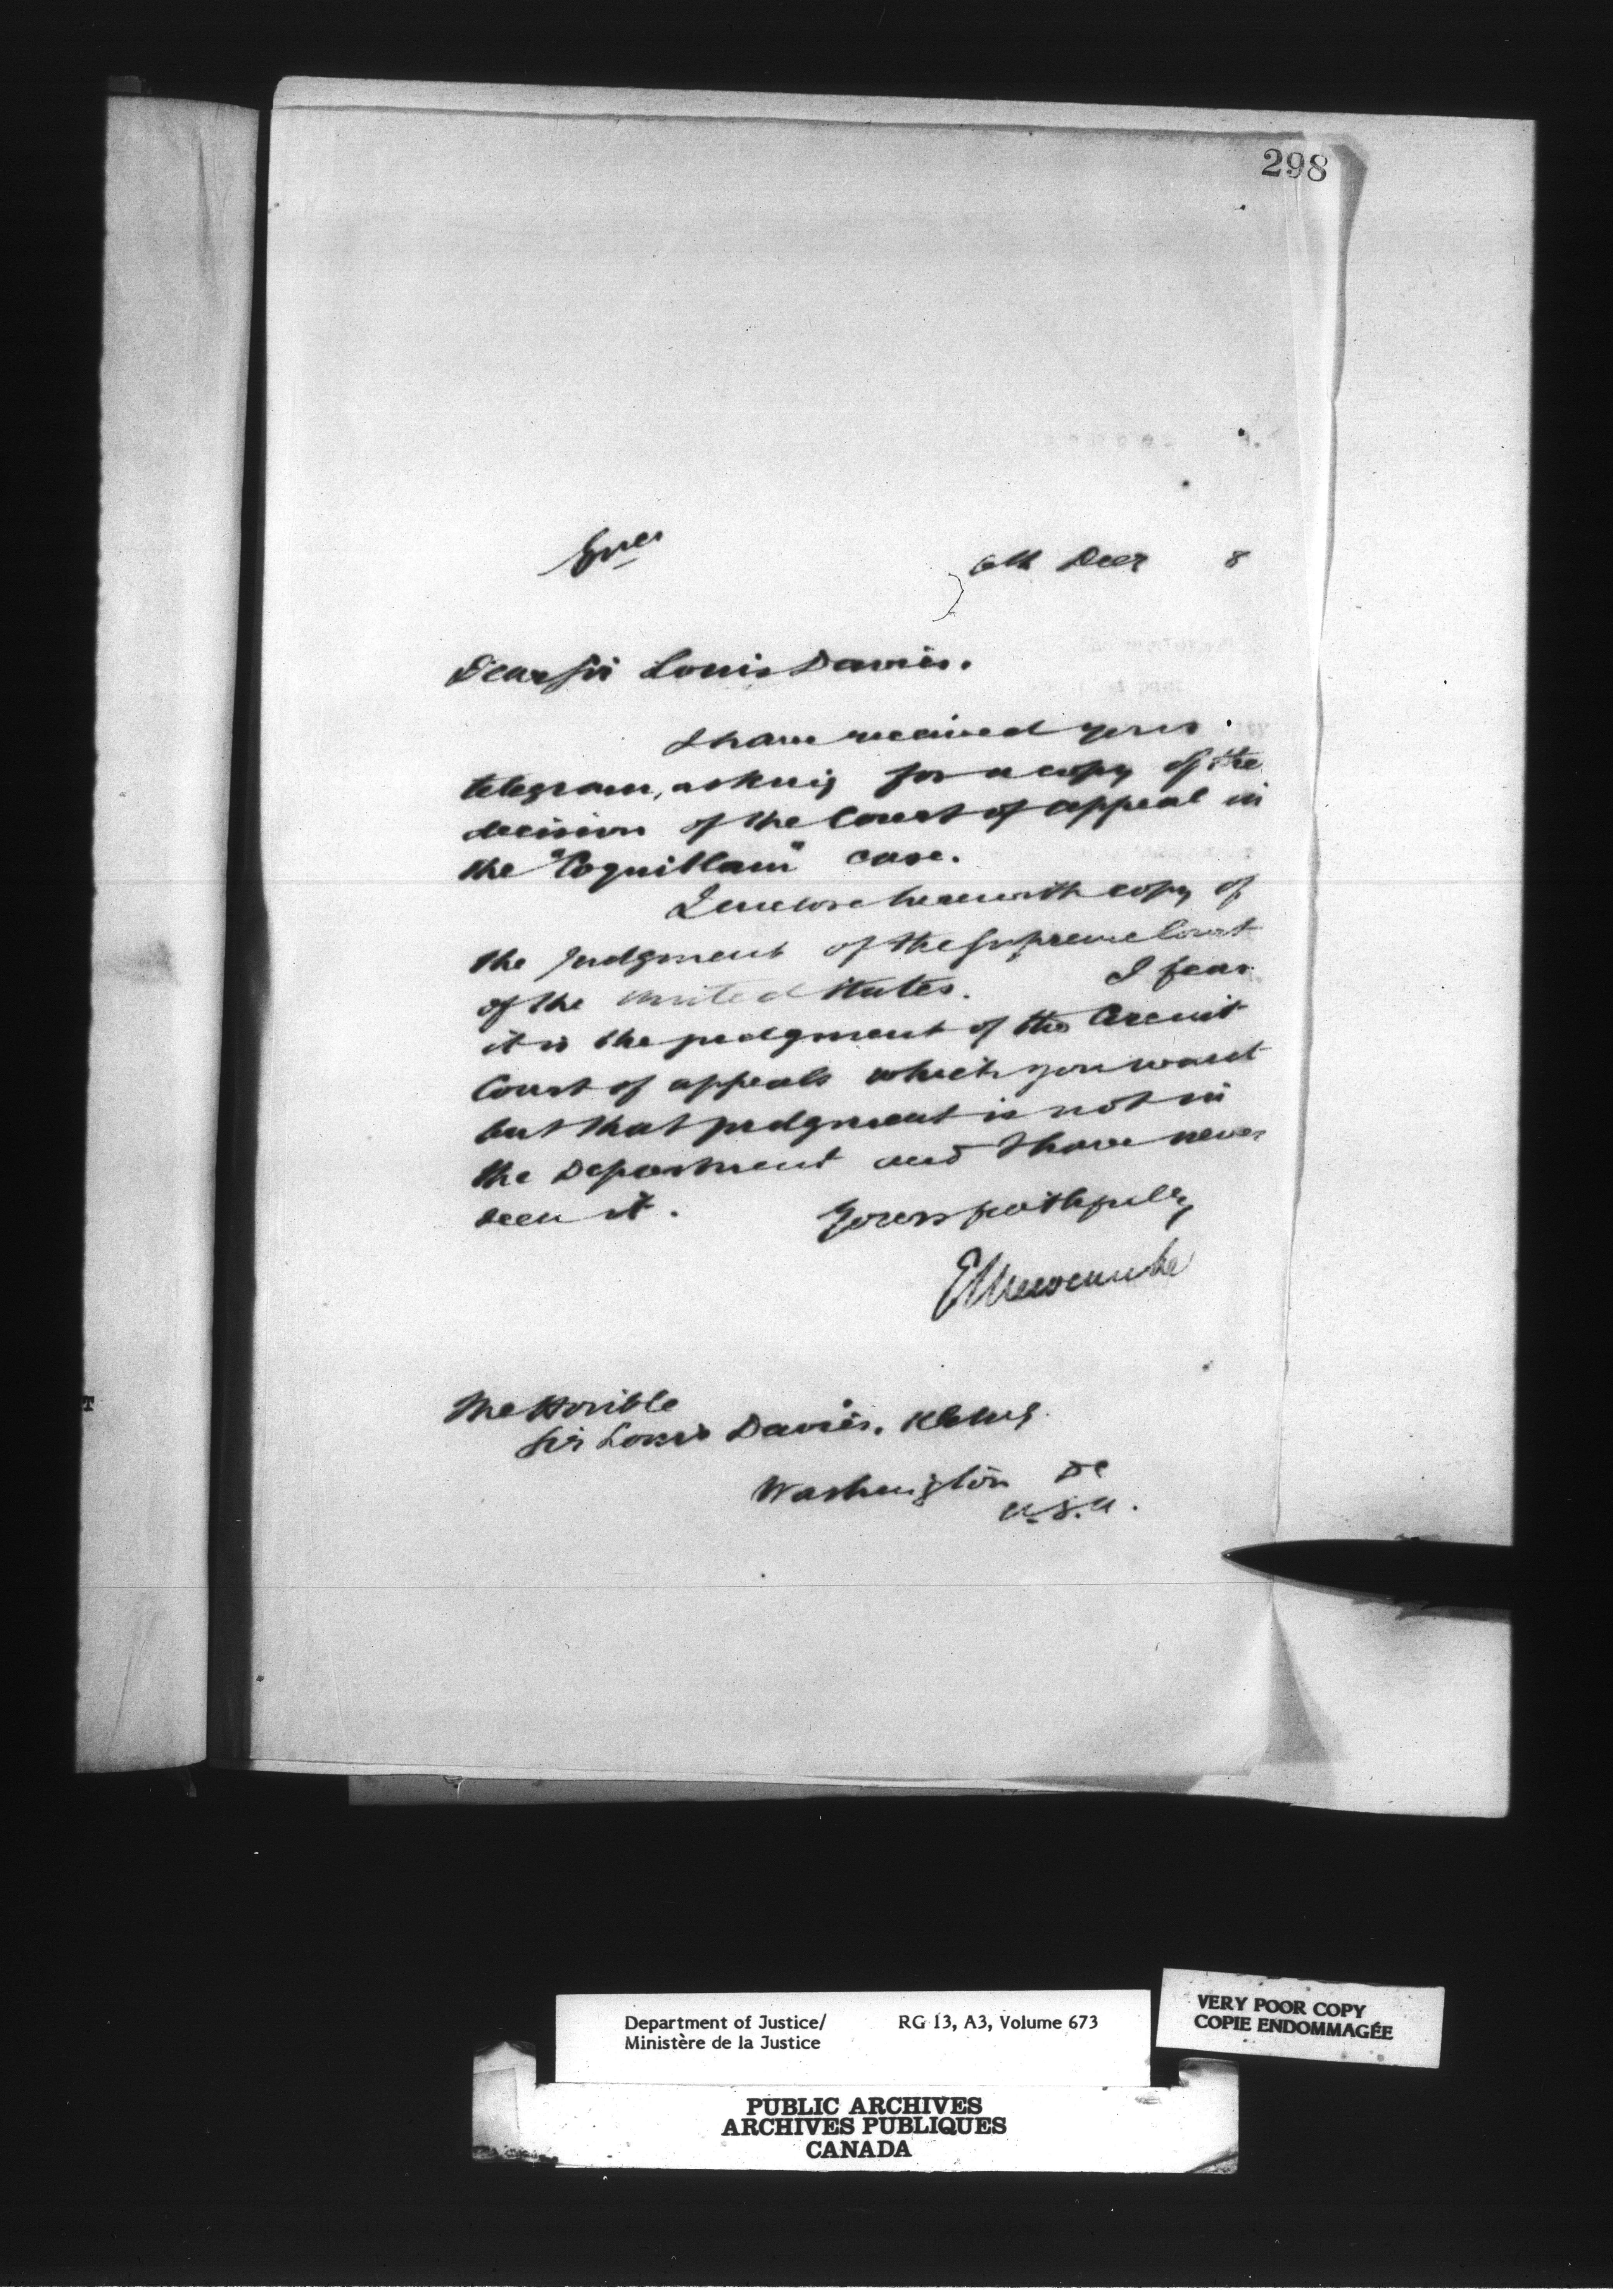 298
6th Decr 8
Dear Sir Louis Davies.
I have received your
telegram, asking for a copy of the
decision of the Court of appeal in
the "Coquitlam" case.
I enclose herewith copy of
the Judgment of the Supreme Court
of the United States. I fear
it is the judgment of the Circuit
Court of appeals which you want
but that judgment is not in
the Department and I have never
seen it.
Yours faithfully
E L Newcombe
The Honible
Sir Louis Davies, KCMG.
Washington DC
U.S.A.
T
Department of Justice/ RG 13, A3, Volume 673
Ministère de la Justice
VERY POOR COPY
COPIE ENDOMMAGÉE
PUBLIC ARCHIVES
ARCHIVES PUBLIQUES
CANADA